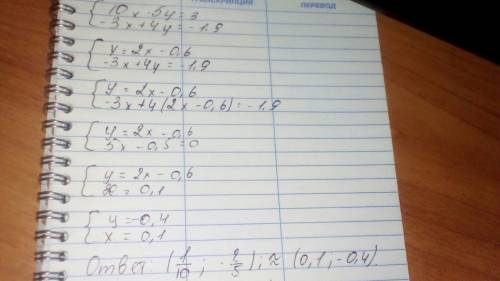 ТРАНСКРИПЦИЯ ПЕРЕВОД
{ 10x - 5y = 3
-3x + 4y = -1.9
{ y = 2x - 0,6
-3x + 4y = -1.9
{ y = 2x - 0,6
-3x + 4(2x - 0,6) = -1,9
{ y = 2x - 0.6
5x - 0.5 = 0
{ y = 2x - 0,6
x = 0,1
{ y = -0,4
x = 0,1
Ответ: (1/10 ; -2/5); ≈ (0,1, -0,4).